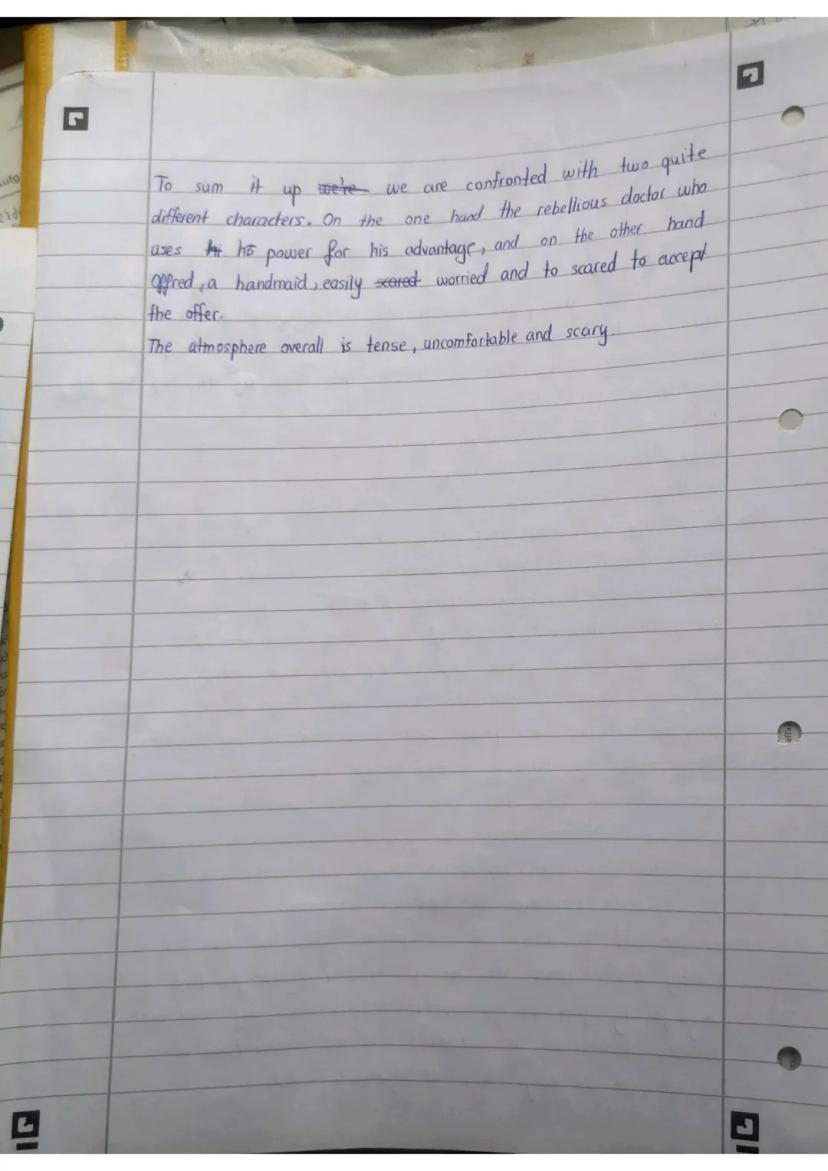 To sum it up we're we are confronted with two quite
different characters. On the one hand the rebellious doctor who
uses his power for his advantage, and on the other hand
Offred, a handmaid, easily scared worried and to scared to accept
the offer.
The atmosphere overall is tense, uncomfortable and scary.